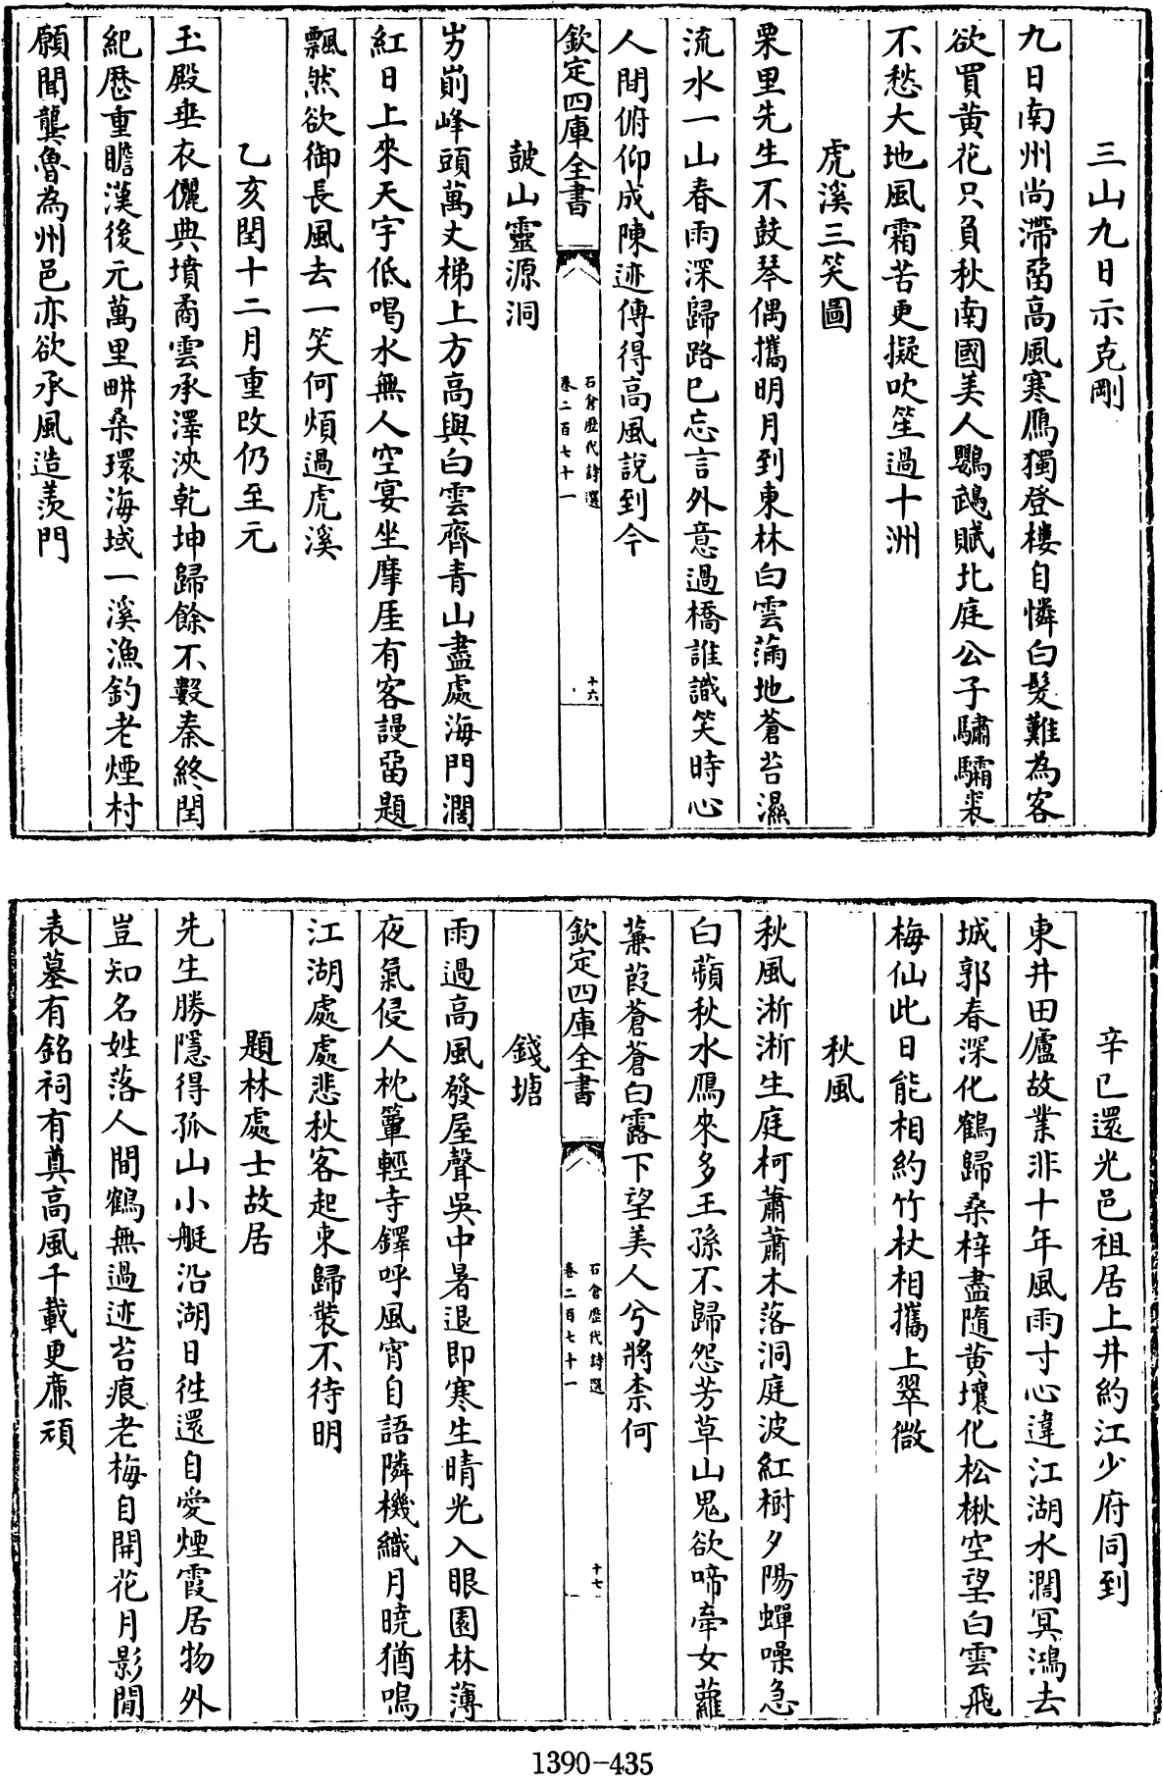 三山九日示克剛
九日南州尚滯留高風寒鴈獨登樓自憐白髮難為客
欲買黄花只負秋南國美人鸚鵡賦北庭公子驌驦裘
不愁大地風霜苦更擬吹笙過十洲
虎溪三笑圖
栗里先生不鼓琴偶攜明月到東林白雲滿地蒼苔濕
流水一山春雨深歸路已忘言外意過橋誰識笑時心
人間俯仰成陳迹傳得高風説到今
欽定四庫全書
石倉歷代詩選
卷二百七十一
十六
鼓山靈源洞
屴崱峰頭萬丈梯上方高與白雲齊青山盡處海門濶
紅日上來天宇低喝水無人空宴坐摩厓有客謾留題
飄然欲御長風去一笑何煩過虎溪
乙亥閏十二月重改仍至元
玉殿垂衣儷典墳矞雲承澤泱乾坤歸餘不數秦終閏
紀厯重瞻漢後元萬里畊桑環海域一溪漁釣老煙村
願聞龔魯為州邑亦欲承風造羨門
辛已還光邑祖居上井約江少府同到
東井田廬故業非十年風雨寸心違江湖水濶冥鴻去
城郭春深化鶴歸桑梓盡隨黄壤化松楸空望白雲飛
梅仙此日能相約竹杖相攜上翠微
秋風
秋風淅淅生庭柯蕭蕭木落洞庭波紅樹夕陽蟬噪急
白蘋秋水鴈來多王孫不歸怨芳草山鬼欲啼牽女蘿
蒹葭蒼蒼白露下望美人兮將柰何
欽定四庫全書
石倉歷代詩選
卷二百七十一
十七
錢塘
雨過高風發屋聲吳中暑退即寒生晴光入眼園林薄
夜氣侵人枕簟輕寺鐸呼風宵自語隣機織月曉猶鳴
江湖處處悲秋客起束歸裝不待明
題林處士故居
先生勝隱得孤山小艇沿湖日往還自愛煙霞居物外
豈知名姓落人間鶴無過迹苔痕老梅自開花月影閒
表墓有銘祠有奠高風千載更亷頑
1390-435